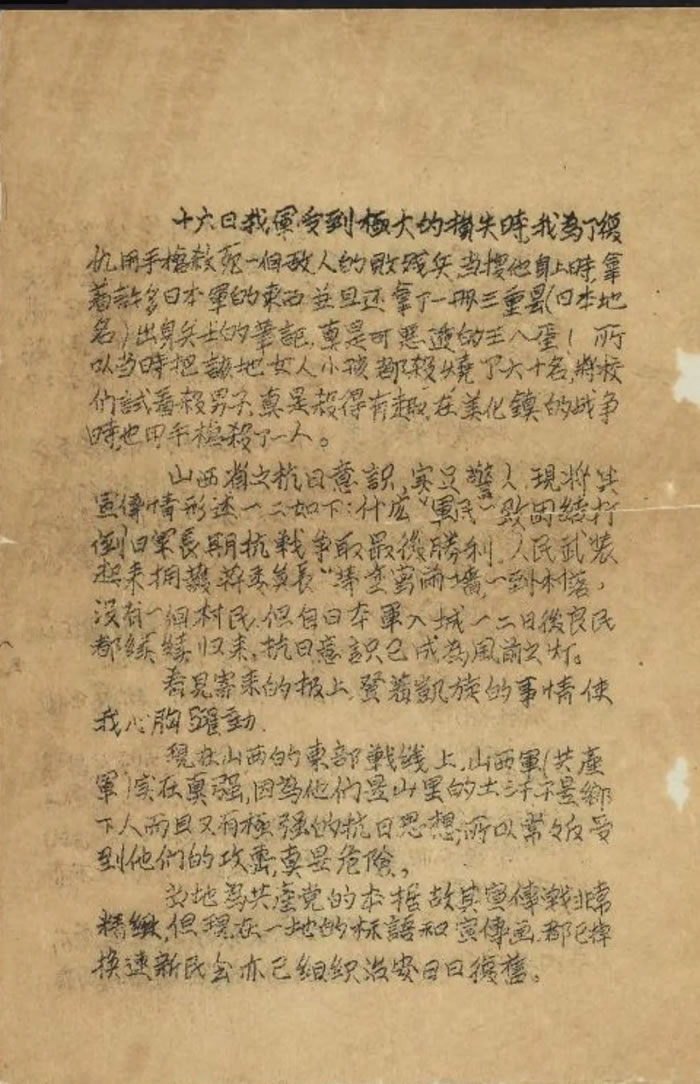 十六日我軍受到極大的損失時,我為了復
仇用手槍殺死一個敵人的敗殘兵,当搜他身上時,拿
着許多日本軍的東西並且还拿了一冊三重県(日本地
名)出身兵士的筆記,真是可惡透的王八蛋!所
以当時把該地女人小孩都殺燒了六十名,將校
們試着殺男子真是殺得有趣,在美化鎮的战争
時,也用手槍殺了一人。
山西省之抗日意識,实足驚人,現將其
宣傳情形述一二如下:什広“軍民一致団結打
倒日军長期抗戦争取最後勝利,人民武装
起来拥護蒋委員長”等塗写両墙一到村落,
没有一個村民,但自日本軍入城一二日後良民
都续续归来,抗日意識已成為風前之灯。
看見寄来的报上,登着凱旋的事情使
我心胸躍動.
現在山西的東部戦线上,山西軍(共產
軍)实在真强,因為他們是山里的土 不是鄉
下人而且又有極强的抗日思想,所以常々反受
到他們的攻擊,真是危險,
当地為共產党的本据故其宣傳戦非常
精緻,但現在一地的标語和宣傳画,都已掉
换速新民会亦已组织治安日日復舊。